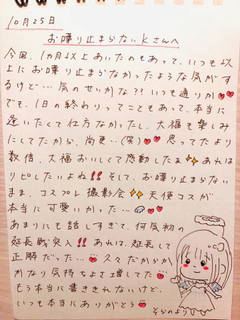 10月25日
お喋り止まらないKさんへ
今回、1ヵ月以上あいたのもあって、いつも以
上にお喋り止まらなかったような気がす
るけど…気のせいかな??いつも通りか
でも、1日の終わりってこともあって、本当に
逢いたくて仕方なかったし、大福も楽しみ
にしてたから、尚更…(笑)思ってたより
数倍、大福おいしくて感動したよ あれは
リピしたいよね!!そして、お喋り止まらない
まま、コスプレ撮影会 天使コスが
本当に可愛いかった…
あまりにも話しすぎて、何気初の
延長戦突入!!あれは、延長して
正解だった…久々だからか
かなり気持ちよさ増してた…
もう本当に書ききれないけど、
いつも本当にありがとう
より